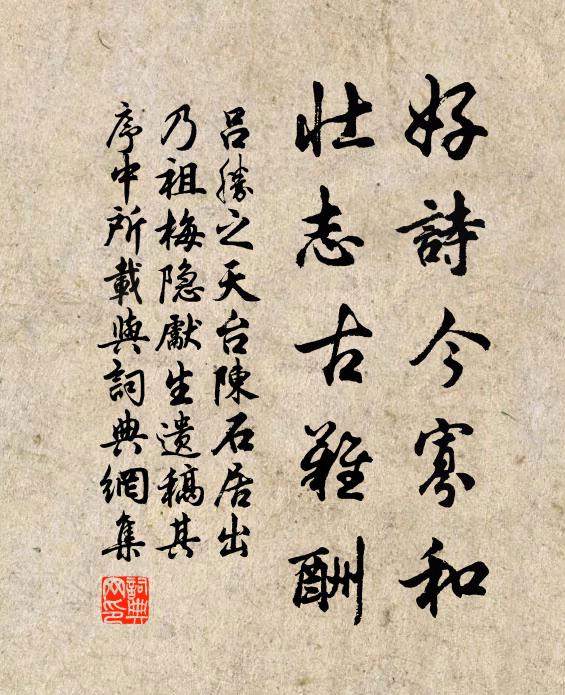 好詩今寡和
壯志古難酬
呂勝之天台陳石居出
乃祖梅隱獻生遺稿其
序中所載與詞典網集
詞典网印